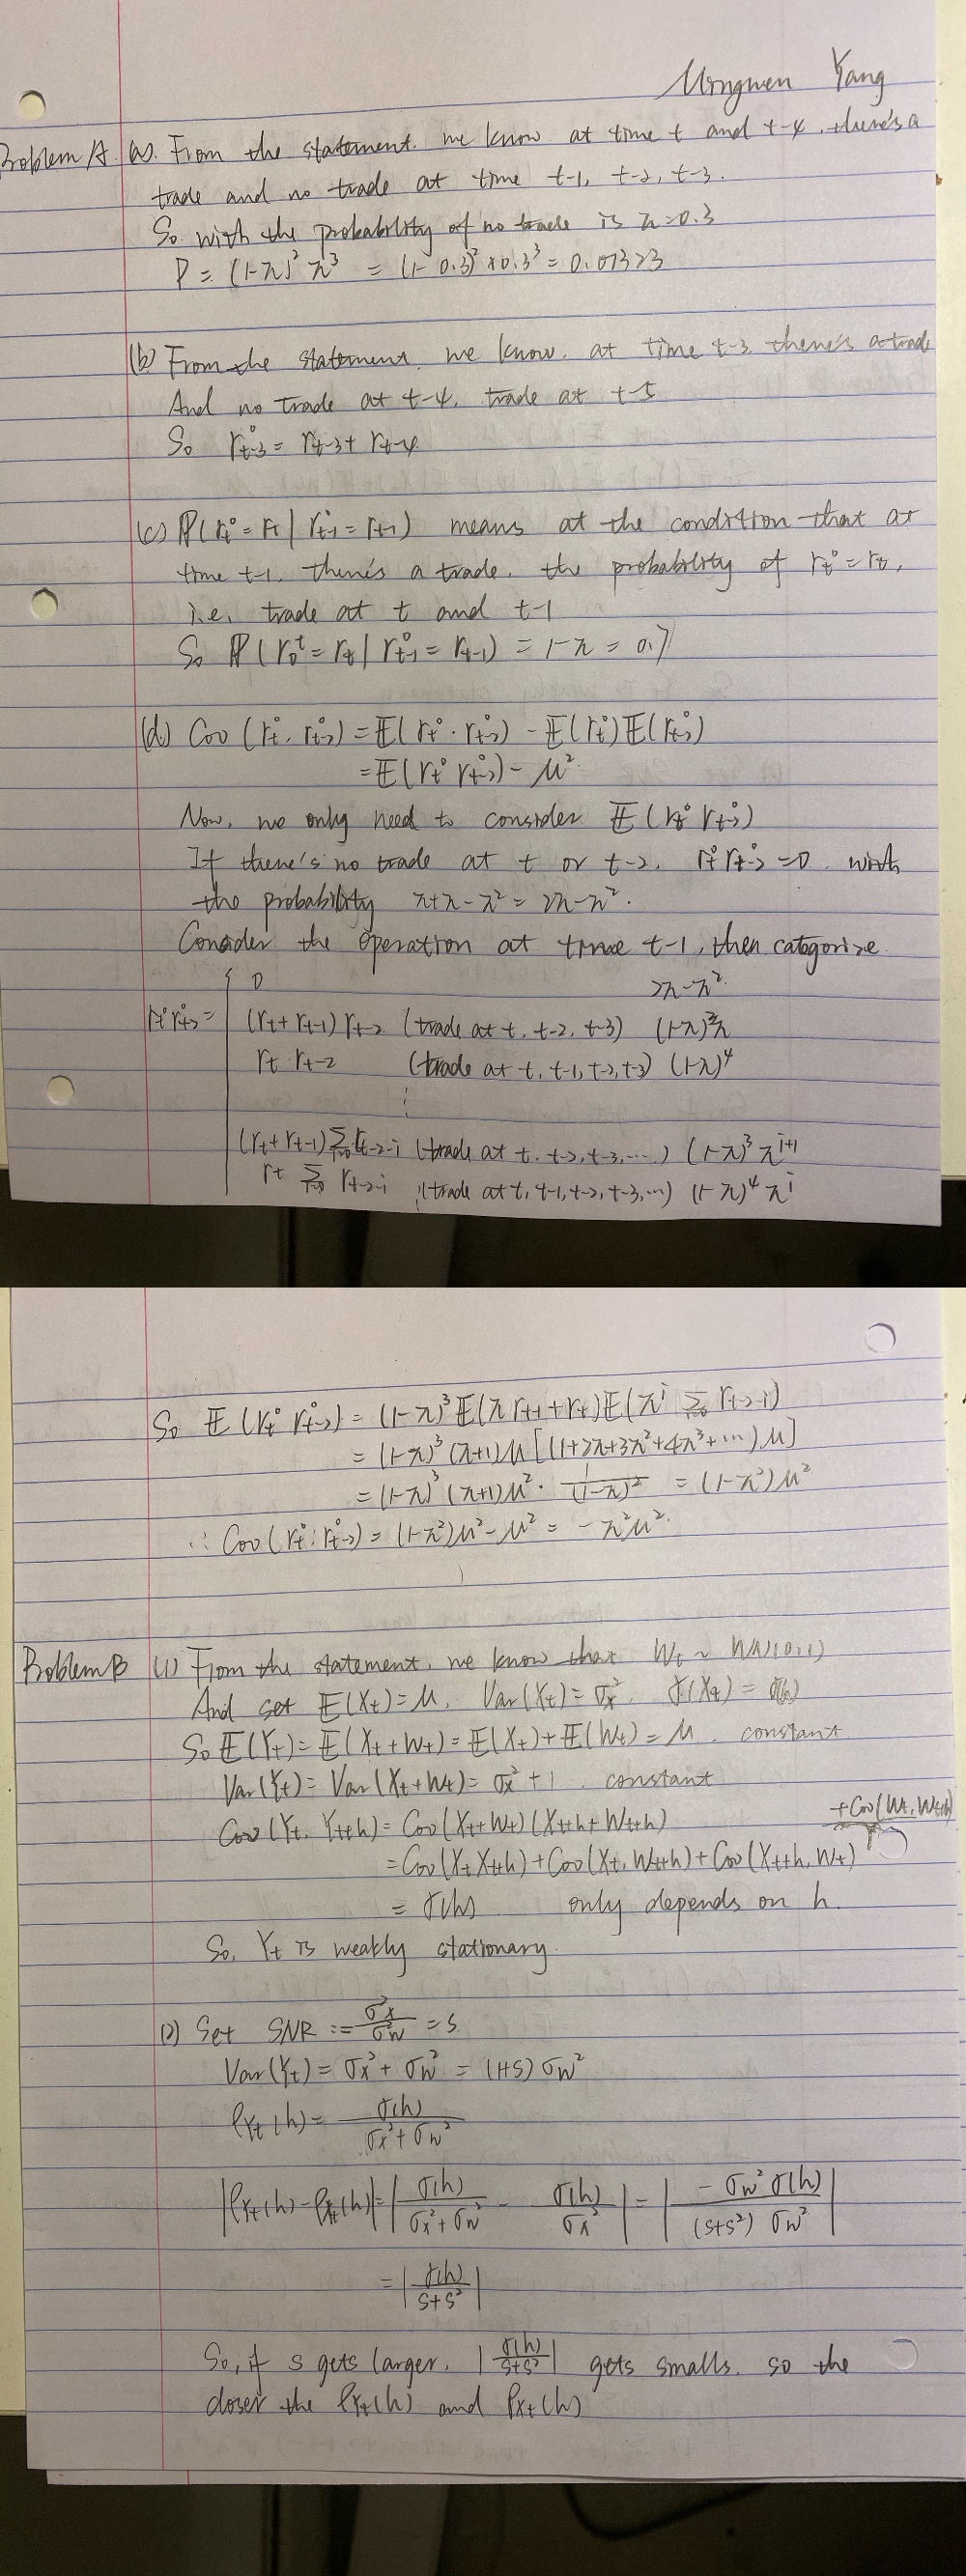 Yang
Problem A (a). From the statement. we know at time t and t-4. there's a
trade and no trade at time t-1, t-2, t-3.
So with the probability of no trade is π=0.3
P = (1-π)² π³ = (1-0.3)² × 0.3³ = 0.01323
(b) From the statement, we know. at time t-3 there's a trade
And no trade at t-4. trade at t-5
So r°t-3 = rt-3 + rt-4
(c) ℙ(rt° = rt | r°t-1 = rt-1) means at the condition that at
time t-1. there's a trade. the probability of rt° = rt,
i.e. trade at t and t-1
So ℙ(r0t = rt | r°t-1 = rt-1) = 1-π = 0.7
(d) Cov(rt°, r°t-2) = 𝔼(rt° · r°t-2) - 𝔼(rt°)𝔼(r°t-2)
= 𝔼(rt° r°t-2) - μ²
Now, we only need to consider 𝔼(rt° r°t-2)
If there's no trade at t or t-2. rt° r°t-2 = 0 with
the probability π+π-π² = 2π-π².
Consider the operation at time t-1, then categorize
0 2π-π²
rt° r°t-2 = (rt+rt-1)rt-2 (trade at t, t-2, t-3) (1-π)³π
rt rt-2 (trade at t, t-1, t-2, t-3) (1-π)⁴
⋮
(rt+rt-1) Σi=0 rt-2-i (trade at t, t-2, t-3, ...) (1-π)³ πi+1
rt Σi=0 rt-2-i (trade at t, t-1, t-2, t-3, ...) (1-π)⁴ πi
So 𝔼(rt° r°t-2) = (1-π)³ 𝔼(π rt-1 + rt) 𝔼(πi Σi=0 rt-2-i)
= (1-π)³ (π+1)μ [(1+2π+3π²+4π³+...)μ]
= (1-π)³ (π+1)μ² · 1/(1-π)² = (1-π²)μ²
∴ Cov(rt°, r°t-2) = (1-π²)μ² - μ² = -π²μ².
Problem B (1) From the statement, we know that Wt ~ WN(0,1)
And set 𝔼(Xt) = μ, Var(Xt) = σx², γ(Xt) = γ(h)
So 𝔼(Yt) = 𝔼(Xt+Wt) = 𝔼(Xt) + 𝔼(Wt) = μ. constant
Var(Yt) = Var(Xt+Wt) = σx²+1. constant
Cov(Yt, Yt+h) = Cov(Xt+Wt)(Xt+h+Wt+h)
= Cov(Xt Xt+h) + Cov(Xt, Wt+h) + Cov(Xt+h, Wt) + Cov(Wt, Wt+h)
= γ(h) only depends on h.
So, Yt is weakly stationary.
(2) Set SNR := σx²/σw² = s.
Var(Yt) = σx² + σw² = (1+s)σw²
ρYt(h) = γ(h)/(σx²+σw²)
|ρYt(h) - ρXt(h)| = |γ(h)/(σx²+σw²) - γ(h)/σx²| = |-σw² γ(h)/((s+s²) σw²)|
= |γ(h)/(s+s²)|
So, if s gets larger. |γ(h)/(s+s²)| gets smalls. so the
closer the ρYt(h) and ρXt(h)